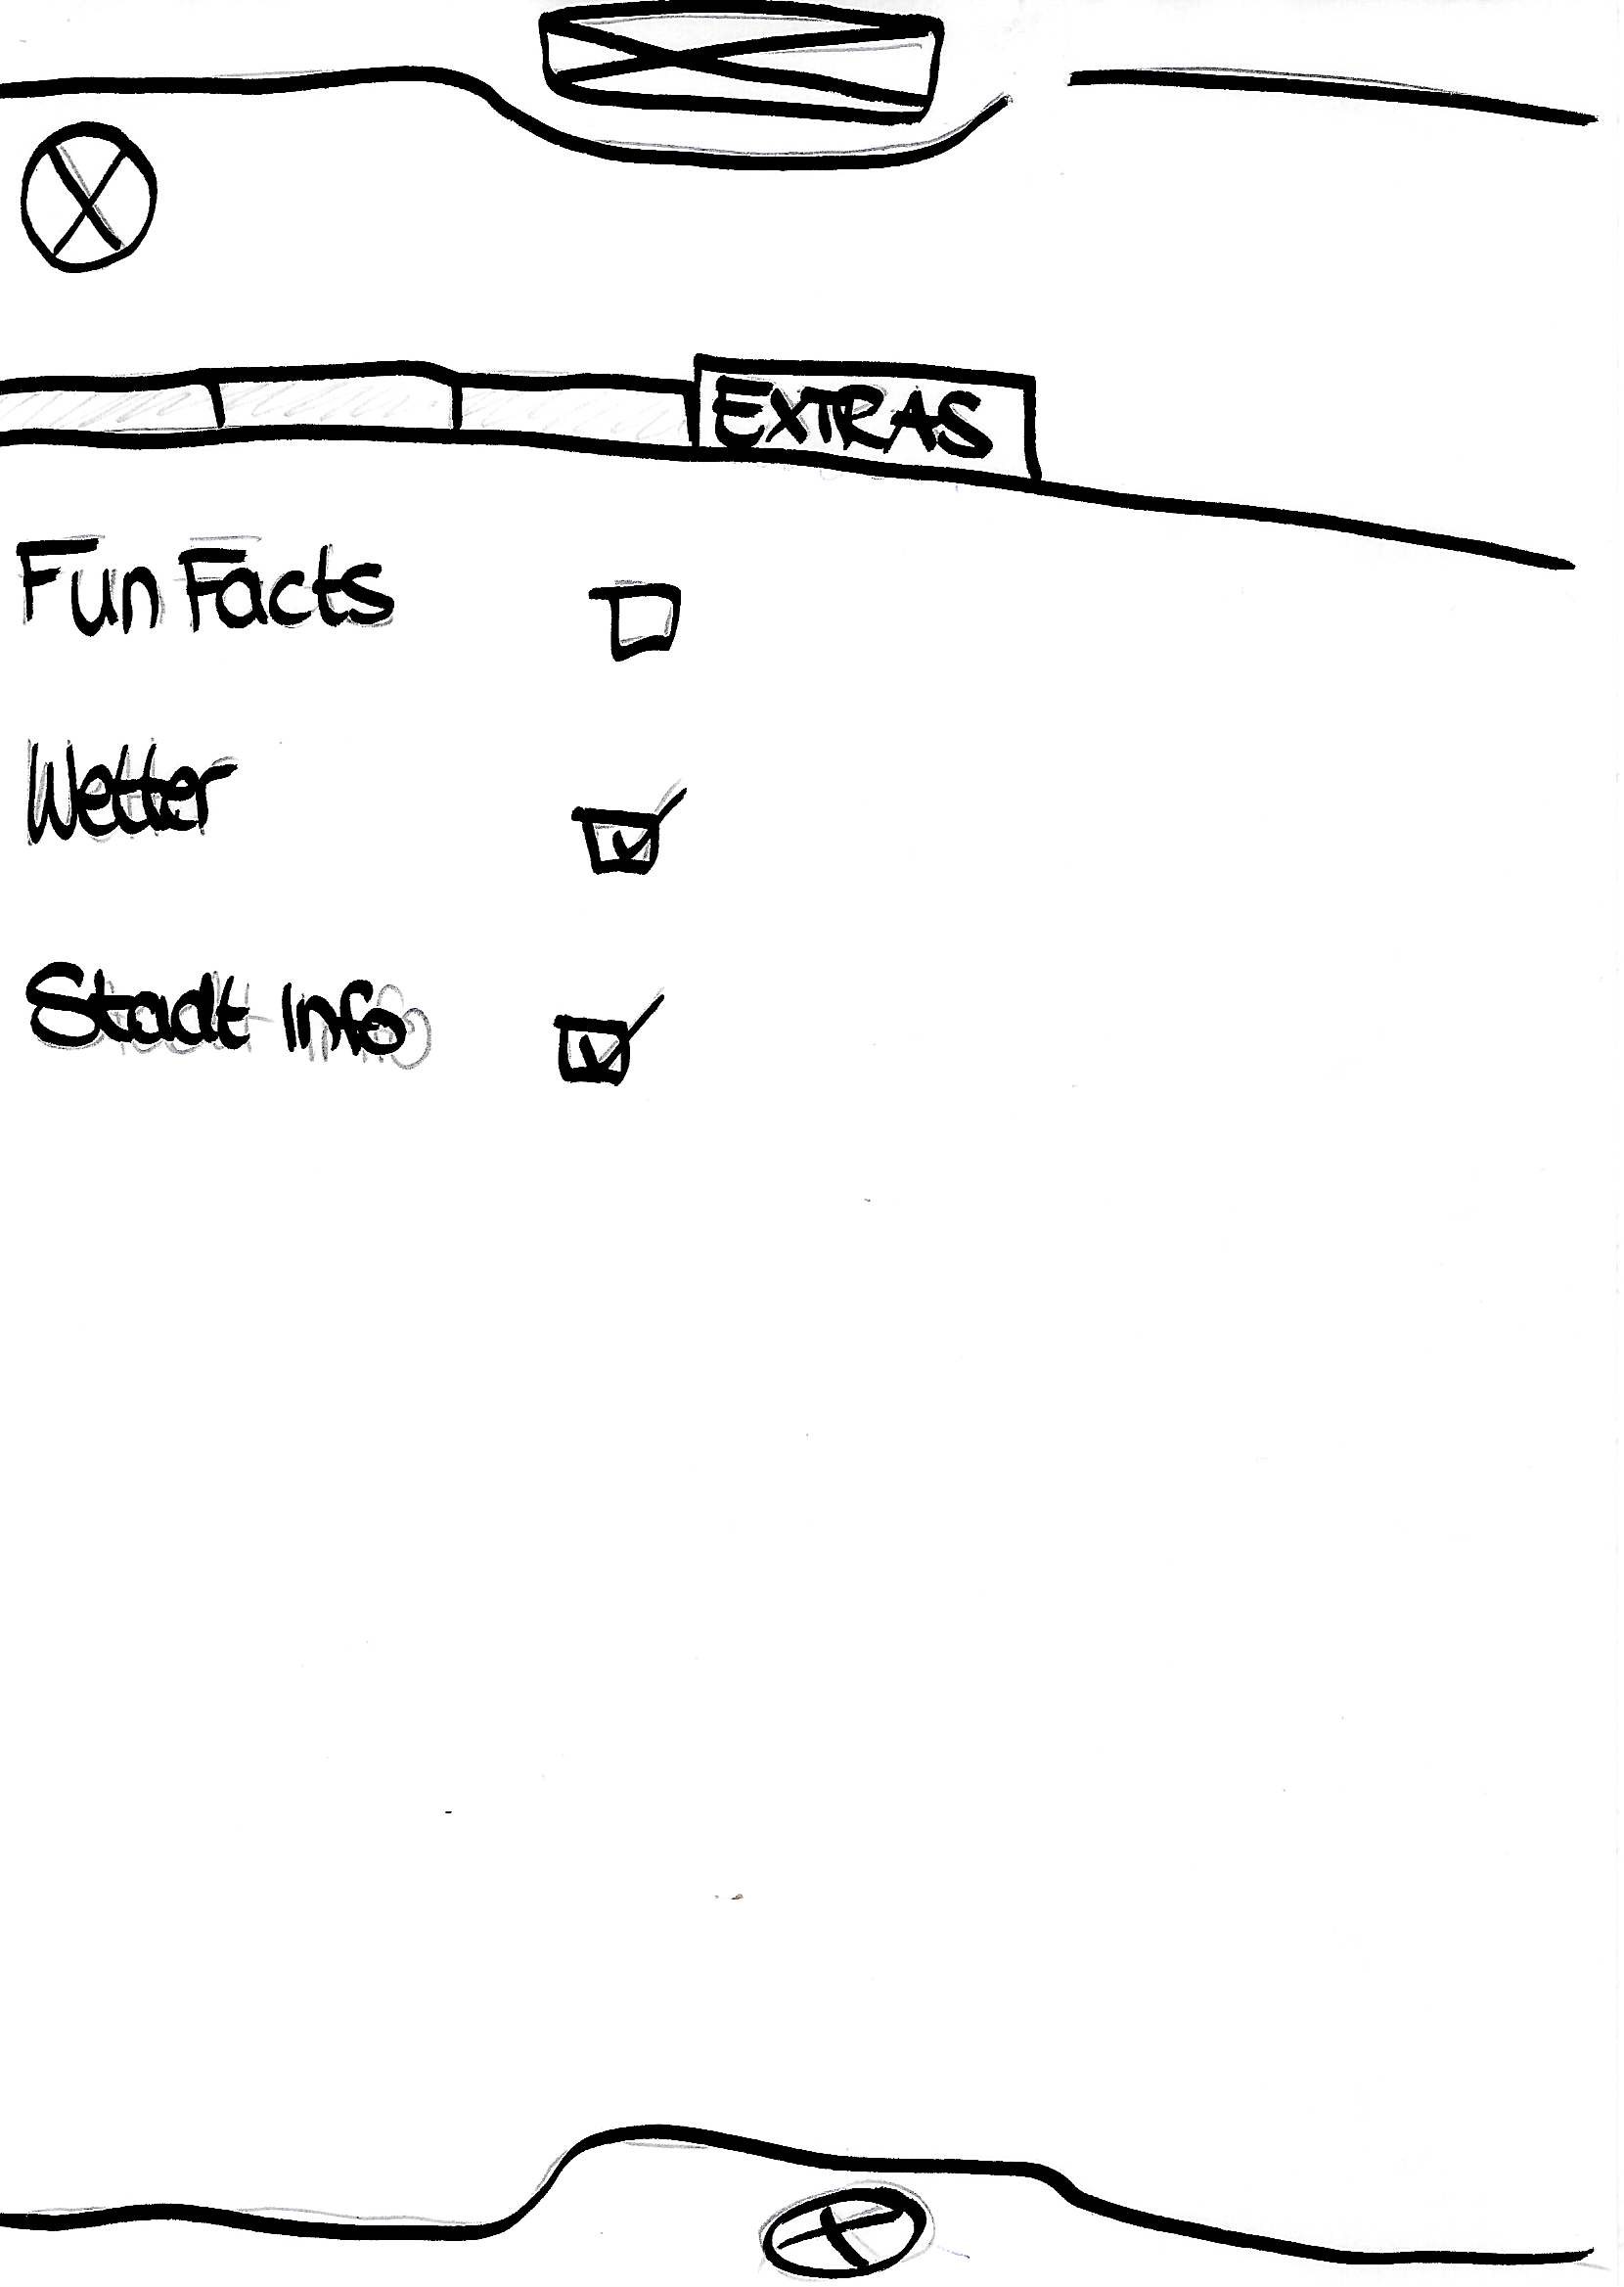 EXTRAS
Fun Facts
Wetter
Stadt Info